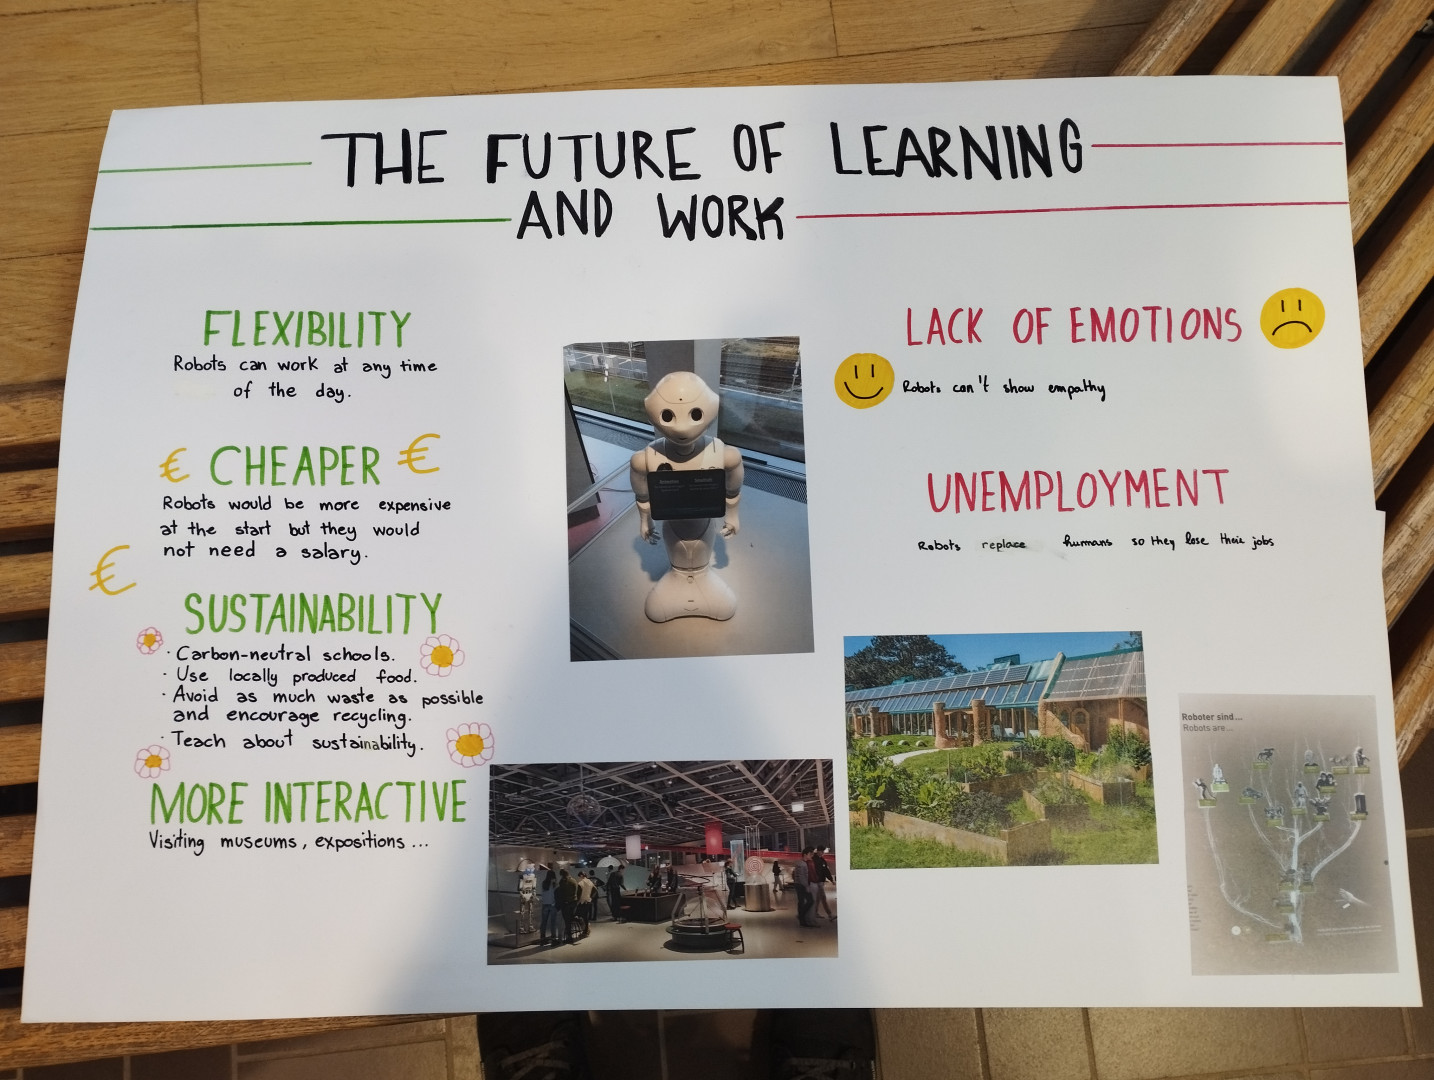 THE FUTURE OF LEARNING
AND WORK
FLEXIBILITY
Robots can work at any time
of the day.
€ CHEAPER €
Robots would be more expensive
at the start but they would
not need a salary.
€
SUSTAINABILITY
· Carbon-neutral schools.
· Use locally produced food.
· Avoid as much waste as possible
and encourage recycling.
· Teach about sustainability.
MORE INTERACTIVE
Visiting museums, expositions...
LACK OF EMOTIONS
Robots can't show empathy
UNEMPLOYMENT
Robots replace humans so they lose their jobs
Roboter sind...
Robots are...